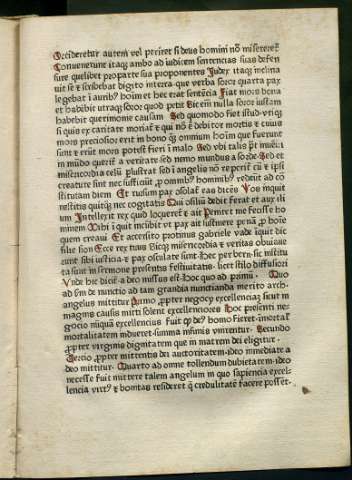 Occideretur autem vel periret si deus homini nō misereret᷑
Convenerunt itaqꝫ ambo ad iudicem sentencias suas defen
sure quelibet pro parte sua proponentes Iudex itaqꝫ inclina
vit se ⁊ scribebat digito in terra que verba soror quarta pax
legebat ī aurib⁹ hoīm et hec erat sentēcia Fiat mors bona
et habebit utraqꝫ soror quod petit Sic enī nulla soror iustam
habebit querimonie causam Sed quomodo fiet istud ⸱
si quis ex caritate moriat᷑ ⁊ qui nō ē debitor mortis ⁊ eius
mors preciosior erit in bono qꝫ omnium hoīm que fuerunt
sunt ⁊ erūt mors potest fieri ī malo Sed vbi talis pt̄ inveīri
in mūdo querit᷑ a veritate sed nemo mundus a sorde Sed et
misericordia celū ꝑlustrat sed ī angelis nō reperit cū ⁊ ipsi
creature sint nec sufficiūt ꝓ omnib⁹ hominib⁹ redeūt ad cō
stitutam diem Et rursum pax osolat᷑ eas dicēs Vos inquit
nescitis quicqꝫ nec cogitatis Qui cōsiliū dedit ferat et auxili
um Intellexit rex quid loqueret᷑ ⁊ ait Penitet me fecisse ho
minem Mihi ī quit incūbit vt pax ait sustinere penā ꝓ hoīe
quem creavi Et accersito protinus gabriele vade īquit dic
filie sion Ecce rex tuus Sicqꝫ misericordia ⁊ veritas obviave
runt sibi iusticia ⁊ pax osculate sunt Hec per bern⸱ sic institu
ta sunt in sermone presentis festivitatis⸱ licet stilo diffusiori
Vnde hic dicit᷑ a deo missus est Hoc quo ad primū⸱ Quo
ad sm̄ de nuncio ad tam grandia nuncianda merito arch⸗
angelus mittitur Primo ꝓpter negocij excellenciaꝫ sicut in
magnis causis mitti solent excellenciores Hoc presenti ne⸗
gocio nūquā excellencius fuit qꝛ de⁹ homo fieret īmortal̄
mortalitatem īndueret summa infimis vnirentur⸱ Secundo
ꝓpter virginis dignitatem que in matrem dei eligitur⸱
Tercio ꝓpter mittentis dei auctoritatem⸱ ideo immediate a
deo mittitur⸱ Quarto ad omne tollendum dubietatem⸱ ideo
necesse fuit mittere talem angelum in quo sapiencia excel⸗
lencia virt⁹ ⁊ bonitas resideret q̄ credulitatē facere posset⸱